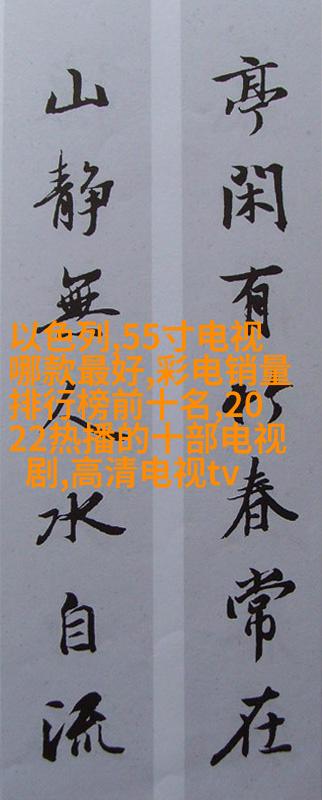 亭閑有竹春常在
山靜無人水自流
以色列,55寸电视
哪款最好,彩电销量
排行榜前十名,20
22热播的十部电视
剧,高清电视tv